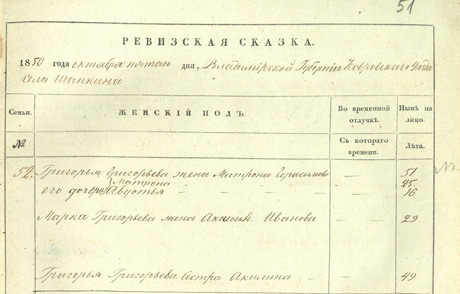 51
РЕВИЗСКАЯ СКАЗКА.
1850 года октября пятого дня, Владимирской Губернии Ковровского Уезда
села Шапкина
Семьи. ЖЕНСКІЙ ПОЛЪ. Во временной отлучкѣ. Нынѣ на лицо.
№ Съ котораго времени. Лѣта.
52. Григорья Григорьева жена Матрона Герасимова — 51
Матрона 25
его дочери Авдотья — — — — — — 16
Марка Григорьева жена Акилина Иванова — 29
Григорья Григорьева Сестра Акилина — — 49